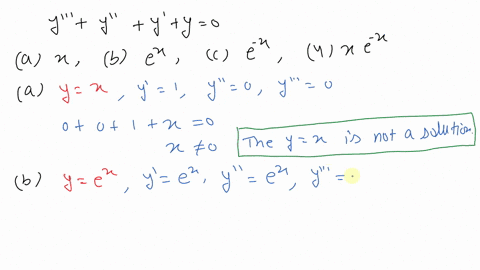 y''' + y'' + y' + y = 0
(a) x, (b) eˣ, (c) e⁻ˣ, (4) x e⁻ˣ
(a) y = x, y' = 1, y'' = 0, y''' = 0
0 + 0 + 1 + x = 0
x ≠ 0
The y = x is not a solution
(b) y = eˣ, y' = eˣ, y'' = eˣ, y''' =